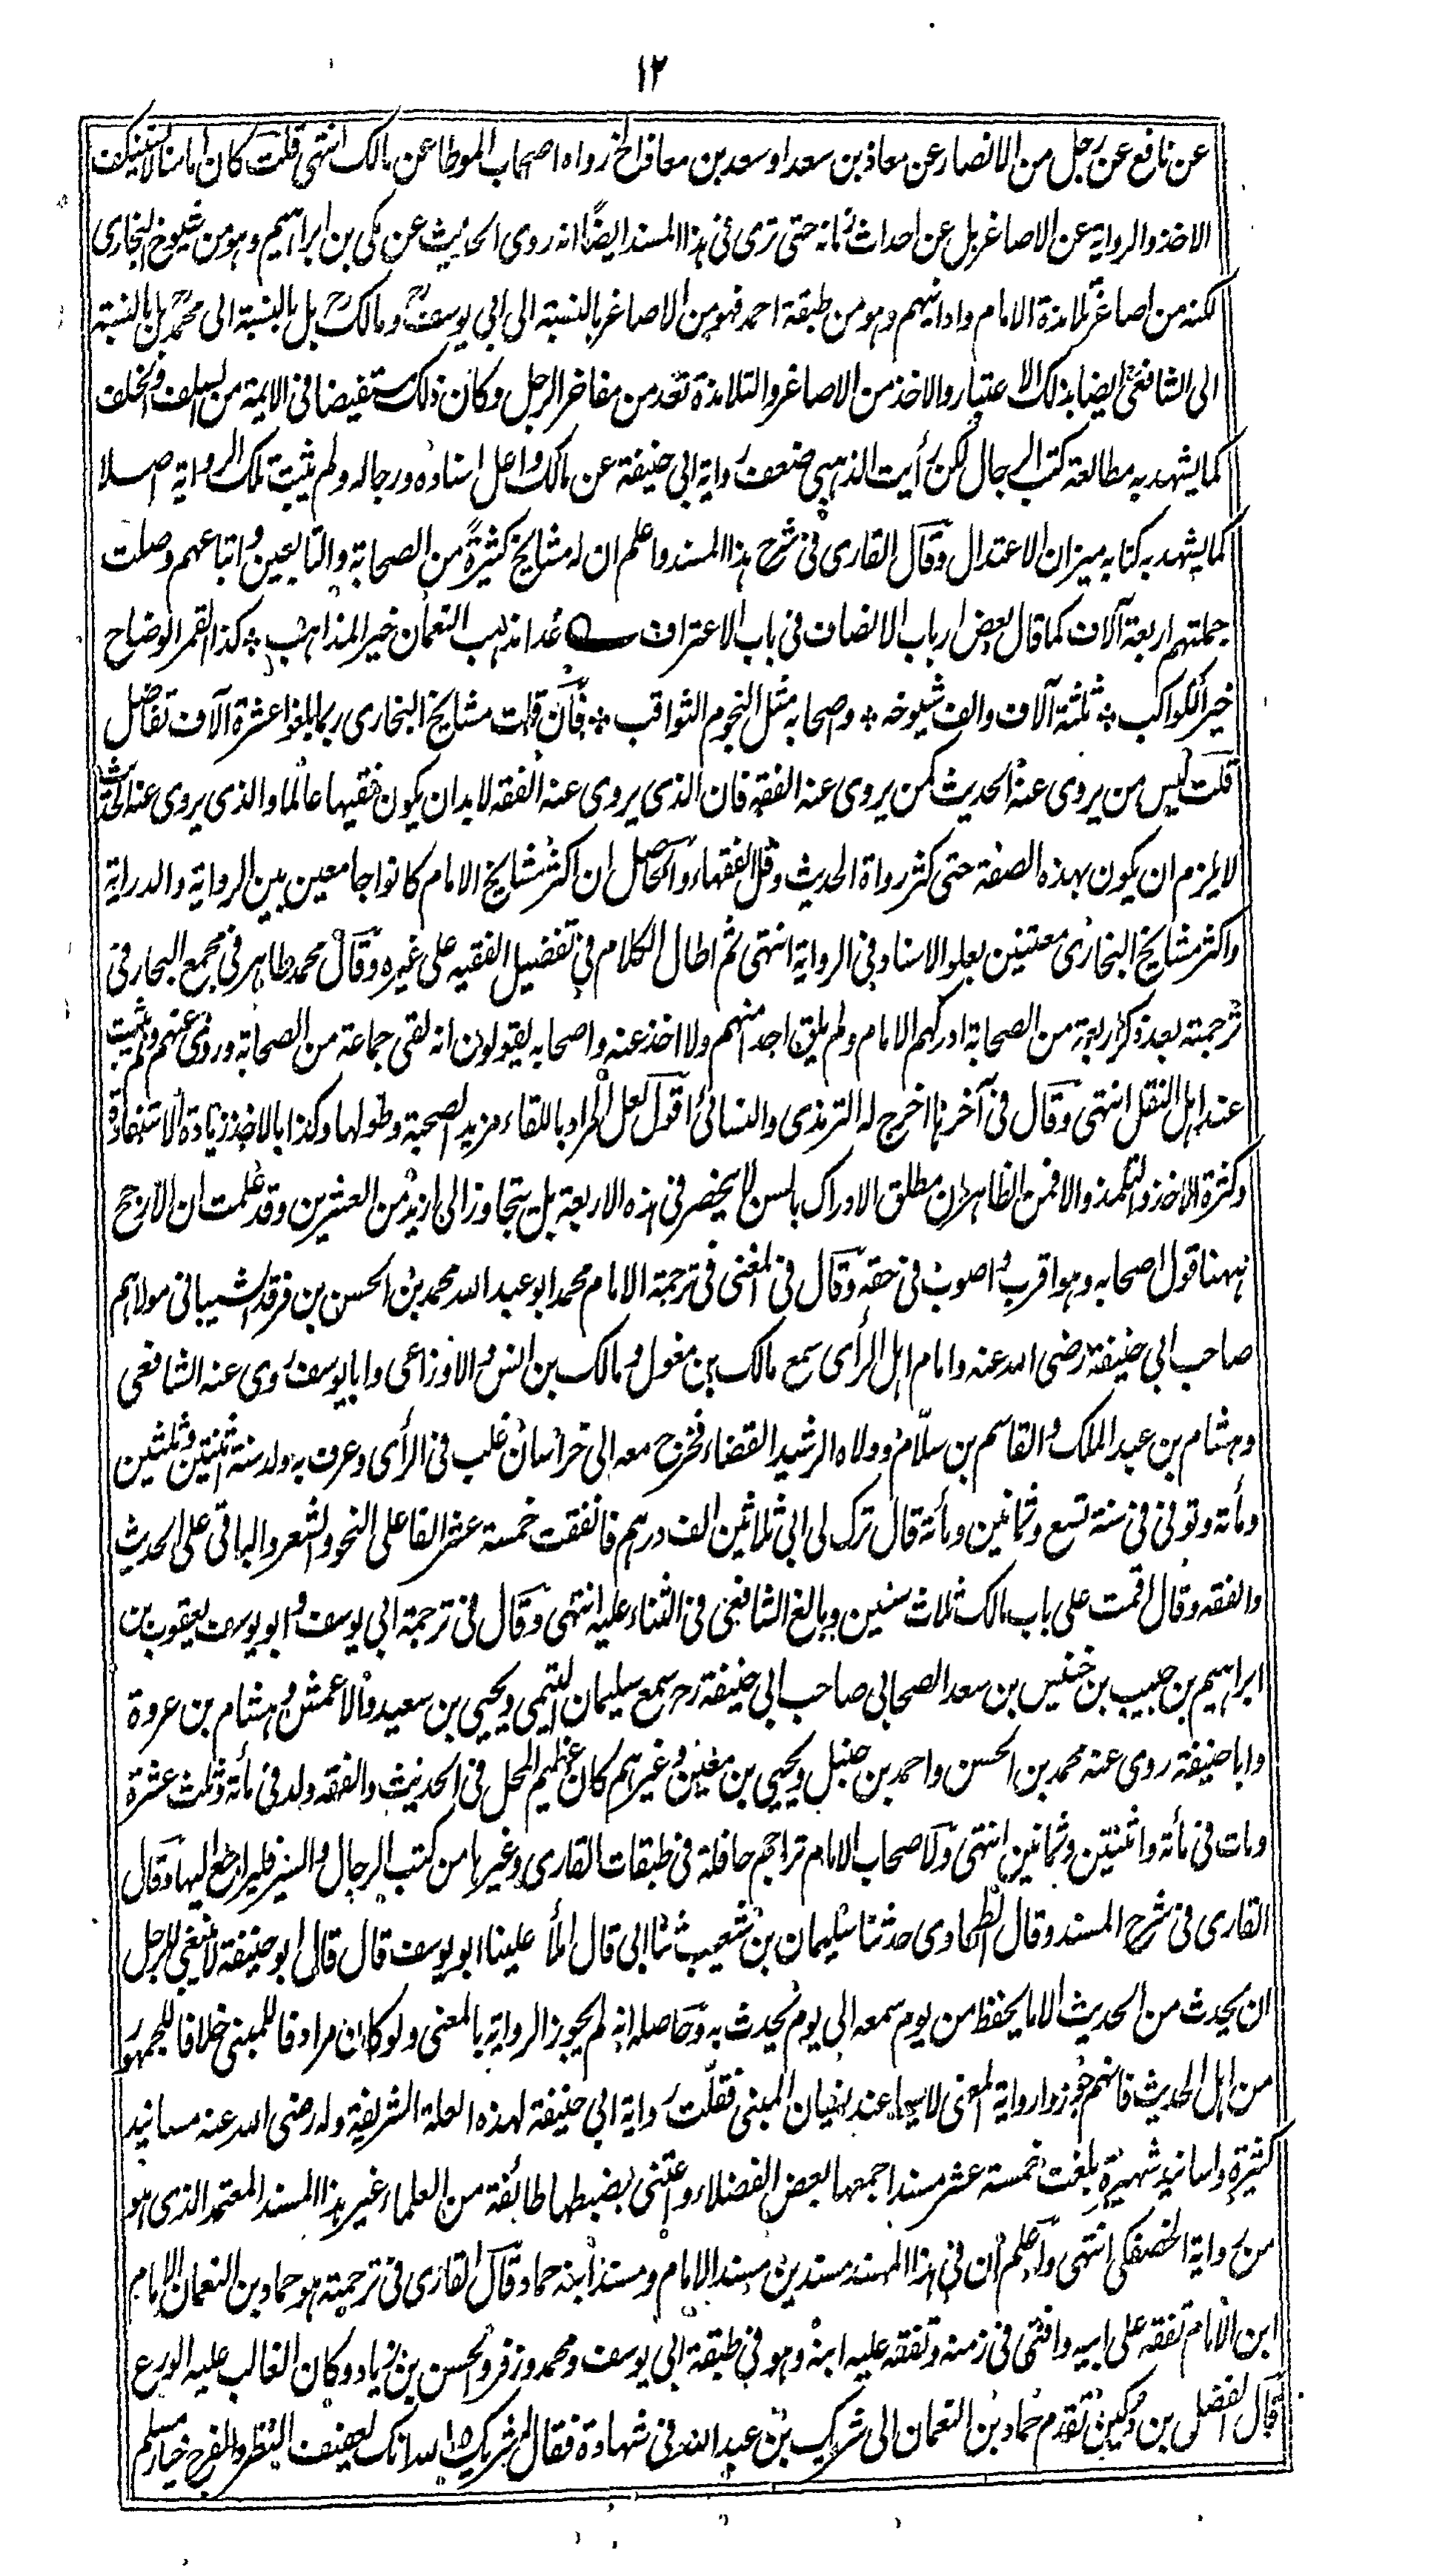 ١٢
عن نافع عن رجل من الانصار عن معاذ بن سعد او سعد بن معاذ الخ رواه اصحاب الموطا عن مالك انتهى قلت كان امامنا لا يستنكف
الاخذ والرواية عن الاصاغر بل عن احداث زمانه حتى ترى في هذا المسند ايضًا انه روى الحديث عن مكي بن ابراهيم وهو من شيوخ البخارى
لكنه من اصاغر تلامذة الامام وادانيهم وهو من طبقة احمد فهو من الاصاغر بالنسبة الى ابي يوسفؒ ومالكؒ بل بالنسبة الى محمدؒ بل بالنسبة
الى الشافعىؒ ايضا بذلك الاعتبار والاخذ من الاصاغر والتلامذة تعد من مفاخر الرجل وكان ذلك مستفيضا فى الايمة من السلف والخلف
كما يشهد به مطالعة كتب الرجال لكن رأيت الذهبي ضعف رواية ابي حنيفة عن مالك واعل اسناده ورجاله ولم يثبت تلك الرواية اصلا
كما يشهد به كتابه ميزان الاعتدال وقال القارى فى شرح هذا المسند واعلم ان له مشايخ كثيرةً من الصحابة والتابعين واتباعهم وصلت
جملتهم اربعة آلاف كما قال بعض ارباب الانصاف فى باب الاعتراف ؎ غدا مذهب النعمان خير المذاهب ؞ كذا القمر الوضاح
خير الكواكب ؞ ثلثة آلاف والف شيوخه ؞ وصحابه مثل النجوم الثواقب ؞ فأن قلت مشايخ البخارى ربما بلغوا عشرة آلاف تفاضل
قلت ليس من يروى عنه الحديث كمن يروى عنه الفقه فان الذى يروى عنه الفقه لابد ان يكون فقيها عالما والذى يروى عنه الحديث
لا يلزم ان يكون بهذه الصفة حتى كثر رواة الحديث وقل الفقهاء والحاصل ان اكثر مشايخ الامام كانوا جامعين بين الرواية والدراية
واكثر مشايخ البخارى معتنين بعلو الاسناد فى الرواية انتهى ثم اطال الكلام فى تفضيل الفقيه على غيره وقال محمد طاهر فى مجمع البحار فى
ترجمته بعد ذكر اربعة من الصحابة ادركهم الامام ولم يلق احدا منهم ولا اخذ عنه واصحابه يقولون انه لقى جماعة من الصحابة وروى عنهم ولم يثبت
عند اهل النقل انتهى وقال فى آخرها اخرج له الترمذى والنسائى اقول لعل المراد باللقاء مزيد الصحبة وطولها وكذا بالاخذ زيادة الاستفادة
وكثرة الاخذ والتلمذ والا فمن الظاهر ان مطلق الادراك بالسن لا ينحصر فى هذه الاربعة بل يتجاوز الى ازيد من العشرين وقد علمت ان الارجح
ههنا قول اصحابه وهو اقرب واصوب فى حقه وقال فى المغنى فى ترجمة الامام محمد ابو عبد الله محمد بن الحسن بن فرقد الشيبانى مولاهم
صاحب ابي حنيفة رضى الله عنه وامام اهل الرأى سمع مالك بن مغول ومالك بن انس والاوزاعى وابا يوسف روى عنه الشافعى
وهشام بن عبد الملك والقاسم بن سلّام وولاه الرشيد القضاء فخرج معه الى خراسان غلب فى الرأى وعرف به ولد سنة ثنتين وثلثين
ومأة وتوفى فى سنة تسع وثمانين ومأة قال ترك لى ابى ثلاثين الف درهم فانفقت خمسة عشر الفا على النحو والشعر والباقى على الحديث
والفقه وقال اقمت على باب مالك ثلاث سنين وبالغ الشافعى فى الثناء عليه انتهى وقال فى ترجمة ابي يوسف هو ابو يوسف يعقوب بن
ابراهيم بن حبيب بن خنيس بن سعد الصحابي صاحب ابي حنيفة رح سمع سليمان التيمى ويحيى بن سعيد والاعمش وهشام بن عروة
وابا حنيفة روى عنه محمد بن الحسن واحمد بن حنبل ويحيى بن معين وغيرهم كان عظيم المحل فى الحديث والفقه ولد فى مأة وثلث عشرة
ومات فى مأة واثنتين وثمانين انتهى ولاصحاب الامام تراجم حافلة فى طبقات القارى وغيرها من كتب الرجال والسير فليراجع اليها وقال
القارى فى شرح المسند وقال الطحاوى حدثنا سليمان بن شعيب ثنا ابى قال املأ علينا ابو يوسف قال قال ابو حنيفة لا ينبغى للرجل
ان يحدث من الحديث الا ما يحفظ من يوم سمعه الى يوم يحدث به وحاصله انه لم يجوز الرواية بالمعنى ولو كان مرادفا للمبنى خلافا للجمهور
من اهل الحديث فانهم جوزوا رواية المعنى لا سيما عند نسيان المبنى فقلّت رواية ابي حنيفة لهذه العلة الشريفة وله رضى الله عنه مسانيد
كثيرة واسانيد شهيرة بلغت خمسة عشر مسندا جمعها بعض الفضلاء واعتنى بضبطها طائفة من العلماء غير هذا المسند المعتمد الذى هو
من رواية الحصفكى انتهى واعلم ان فى هذا المسند مسندين مسند الامام ومسند ابنه حماد وقال القارى فى ترجمته هو حماد بن النعمان الامام
ابن الامام تفقه على ابيه وافتى فى زمنه وتفقه عليه ابنه وهو فى طبقة ابي يوسف ومحمد وزفر والحسن بن زياد وكان الغالب عليه الورع
قال الفضل بن دكين تقدم حماد بن النعمان الى شريك بن عبد الله فى شهادة فقال له شريك والله انك لعفيف النظر والفرج خيار مسلم